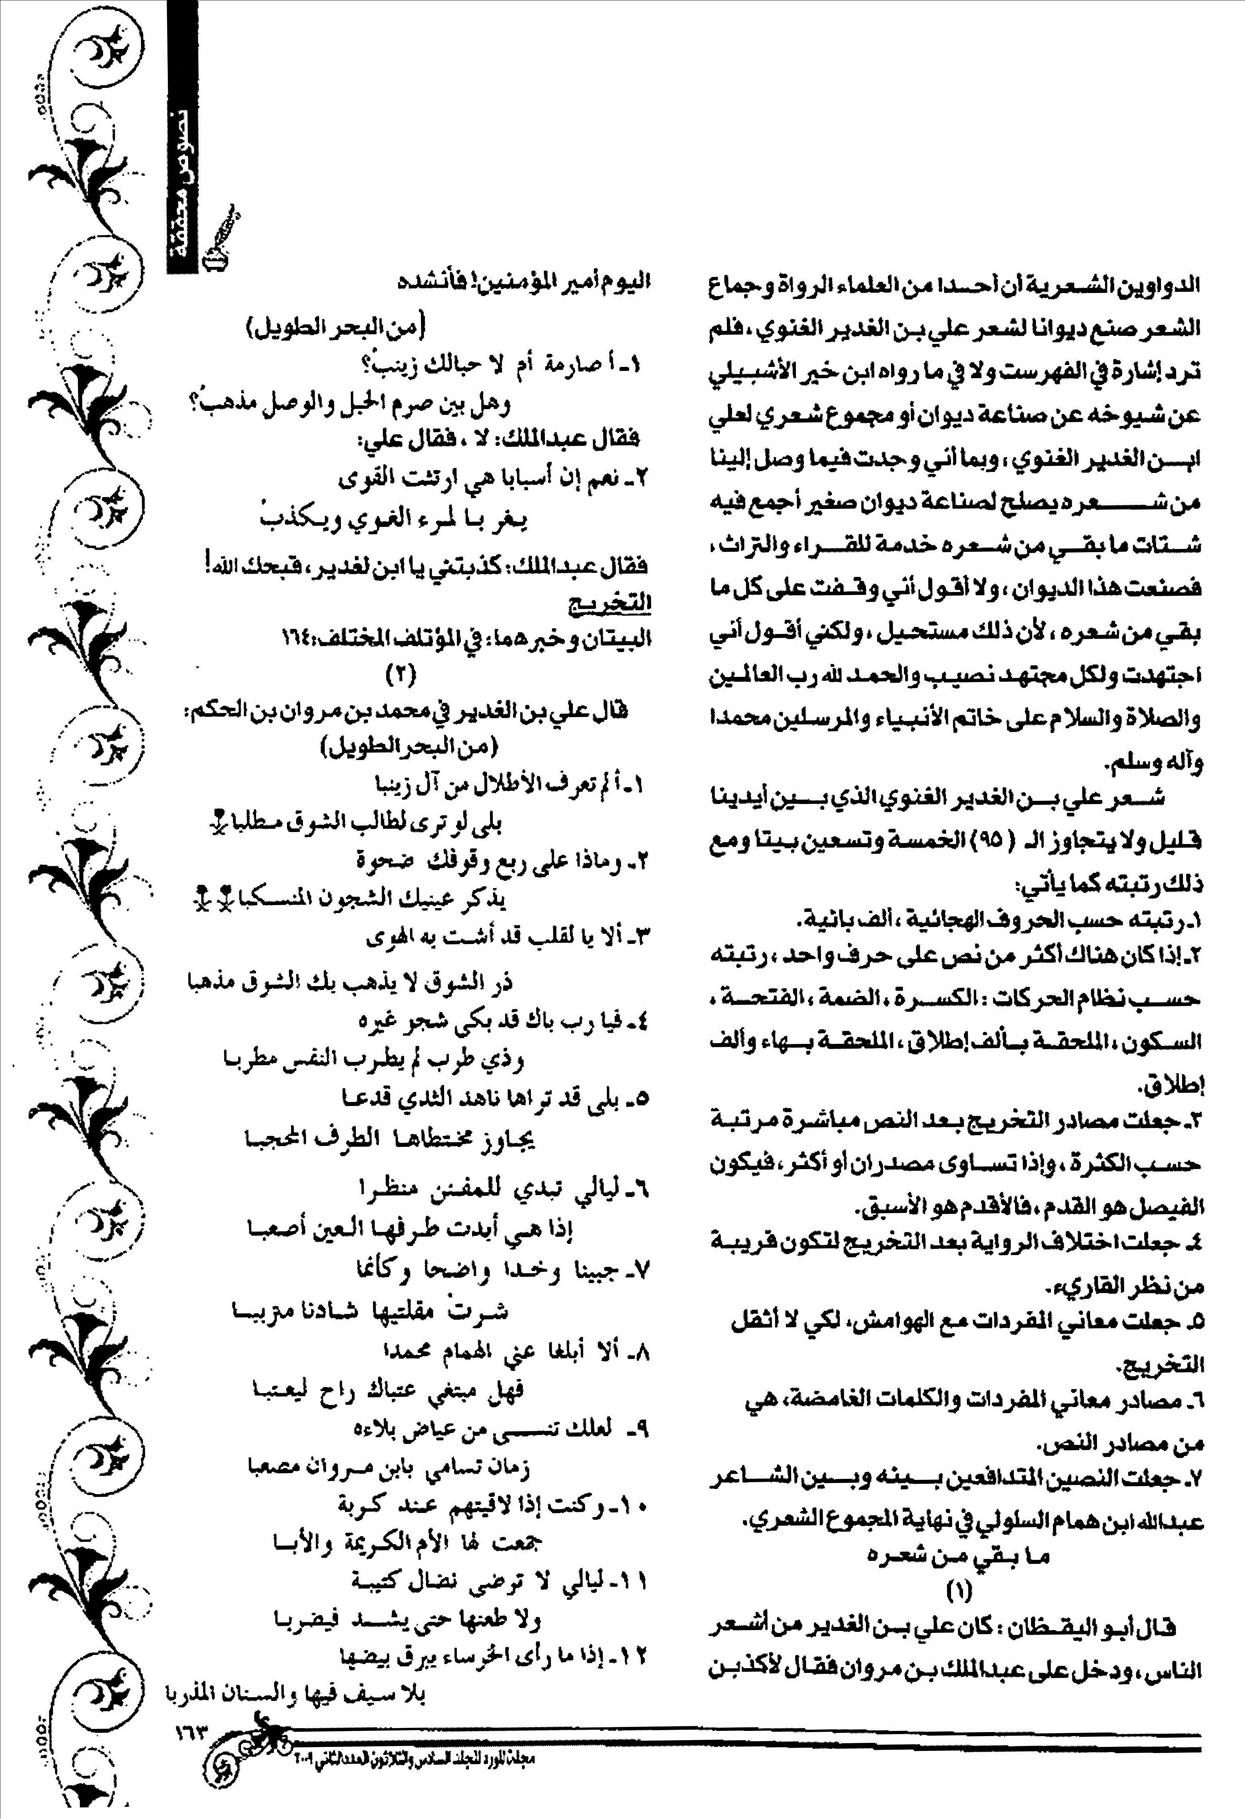 نصوص محققة
الدواوين الشعرية أن أحدا من العلماء الرواة وجماع
الشعر صنع ديوانا لشعر علي بن الغدير الغنوي، فلم
ترد إشارة في الفهرست ولا في ما رواه ابن خير الأشبيلي
عن شيوخه عن صناعة ديوان أو مجموع شعري لعلي
ابن الغدير الغنوي، وبما أني وجدت فيما وصل إلينا
من شعره يصلح لصناعة ديوان صغير أجمع فيه
شتات ما بقي من شعره خدمة للقراء والتراث،
فصنعت هذا الديوان، ولا أقول أني وقفت على كل ما
بقي من شعره، لأن ذلك مستحيل، ولكني أقول أني
اجتهدت ولكل مجتهد نصيب والحمد لله رب العالمين
والصلاة والسلام على خاتم الأنبياء والمرسلين محمدا
وآله وسلم.
شعر علي بن الغدير الغنوي الذي بين أيدينا
قليل ولا يتجاوز الـ (٩٥) الخمسة وتسعين بيتا ومع
ذلك رتبته كما يأتي:
١ـ رتبته حسب الحروف الهجائية، ألف بائية.
٢ـ إذا كان هناك أكثر من نص على حرف واحد، رتبته
حسب نظام الحركات: الكسرة، الضمة، الفتحة،
السكون، الملحقة بألف إطلاق، الملحقة بهاء وألف
إطلاق.
٣ـ جعلت مصادر التخريج بعد النص مباشرة مرتبة
حسب الكثرة، وإذا تساوى مصدران أو أكثر، فيكون
الفيصل هو القدم، فالأقدم هو الأسبق.
٤ـ جعلت اختلاف الرواية بعد التخريج لتكون قريبة
من نظر القاريء.
٥ـ جعلت معاني المفردات مع الهوامش، لكي لا أثقل
التخريج.
٦ـ مصادر معاني المفردات والكلمات الغامضة، هي
من مصادر النص.
٧ـ جعلت النصين المتدافعين بينه وبين الشاعر
عبدالله ابن همام السلولي في نهاية المجموع الشعري.
ما بقي من شعره
(١)
قال أبو اليقظان: كان علي بن الغدير من أشعر
الناس، ودخل على عبدالملك بن مروان فقال لأكذبن
اليوم أمير المؤمنين! فأنشده
(من البحر الطويل)
١ـ أ صارمة أم لا حبالك زينبُ؟
وهل بين صرم الحبل والوصل مذهبُ؟
فقال عبدالملك: لا، فقال علي:
٢ـ نعم إن أسبابا هي ارتثت القوى
يغر بالمرء الغوي ويكذبُ
فقال عبدالملك: كذبتني يا ابن لغدير، قبحك الله!
التخريج
البيتان وخبرهما: في المؤتلف المختلف: ١٦٤
(٢)
قال علي بن الغدير في محمد بن مروان بن الحكم:
(من البحر الطويل)
١ـ ألم تعرف الأطلال من آل زينبا
بلى لو ترى لطالب الشوق مطلبا
٢ـ وماذا على ربع وقوفك ضحوة
يذكر عينيك الشجون المنسكبا
٣ـ ألا يا لقلب قد أشت به الهوى
ذر الشوق لا يذهب بك الشوق مذهبا
٤ـ فيا رب باك قد بكى شجو غيره
وذي طرب لم يطرب النفس مطربا
٥ـ بلى قد تراها ناهد الثدي قدعا
يجاوز مختطاها الطرف المحجبا
٦ـ ليالي تبدي للمفتن منظرا
إذا هي أبدت طرفها العين أصعبا
٧ـ جبينا وخدا واضحا وكأنما
شرتْ مقلتيها شادنا متربببا
٨ـ ألا أبلغا عني الهمام محمدا
فهل مبتغي عتباك راح ليعتبا
٩ـ لعلك تنسى من عياض بلاءه
زمان تسامي بابن مروان مصعبا
١٠ـ وكنت إذا لاقيتهم عند كربة
جمعت لها الأم الكريمة والأبا
١١ـ ليالي لا ترضى نضال كتيبة
ولا طعنها حتى يشد فيضربا
١٢ـ إذا ما رأى الخرساء يبرق بيضها
بلا سيف فيها والسنان المذربا
١٦٣
مجلة المورد المجلد السادس والثلاثون العدد الثاني ٢٠٠٩